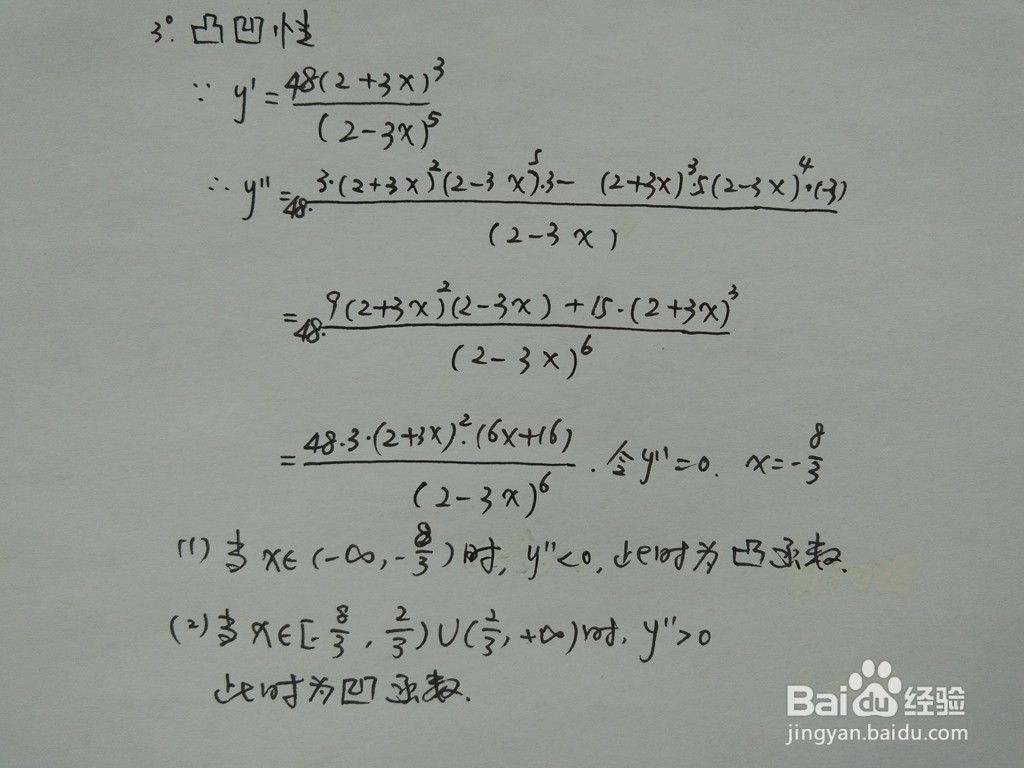 3°. 凸凹性
∵ y' = 48(2+3x)³ / (2-3x)⁵
∴ y'' = 48· 3·(2+3x)²(2-3x)⁵·3 - (2+3x)³·5(2-3x)⁴·(-3) / (2-3x)
= 48· 9(2+3x)²(2-3x) + 15·(2+3x)³ / (2-3x)⁶
= 48·3·(2+3x)²·(6x+16) / (2-3x)⁶ . 令y''=0. x=-8/3
(1) 当 x∈(-∞, -8/3)时, y''<0, 此时为凸函数.
(2) 当 x∈[-8/3, 2/3)∪(2/3, +∞)时, y''>0
此时为凹函数.
Baidu经验
jingyan.baidu.com